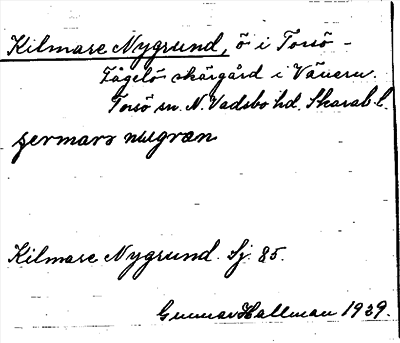 Kilmare Nygrund, ö i Torsö -
Fågelö skärgård i Vänern.
Torsö sn. N. Vadsbo hd. Skarab. l.
Kilmare Nygrund. Sj. 85.
Gunnar Hallman 1929.